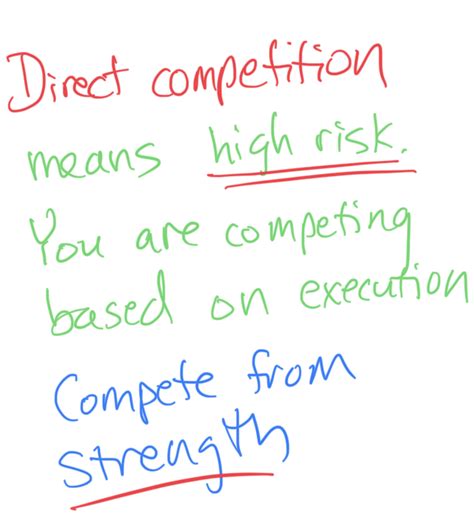 Direct competition
means high risk.
You are competing
based on execution
Compete from
strength